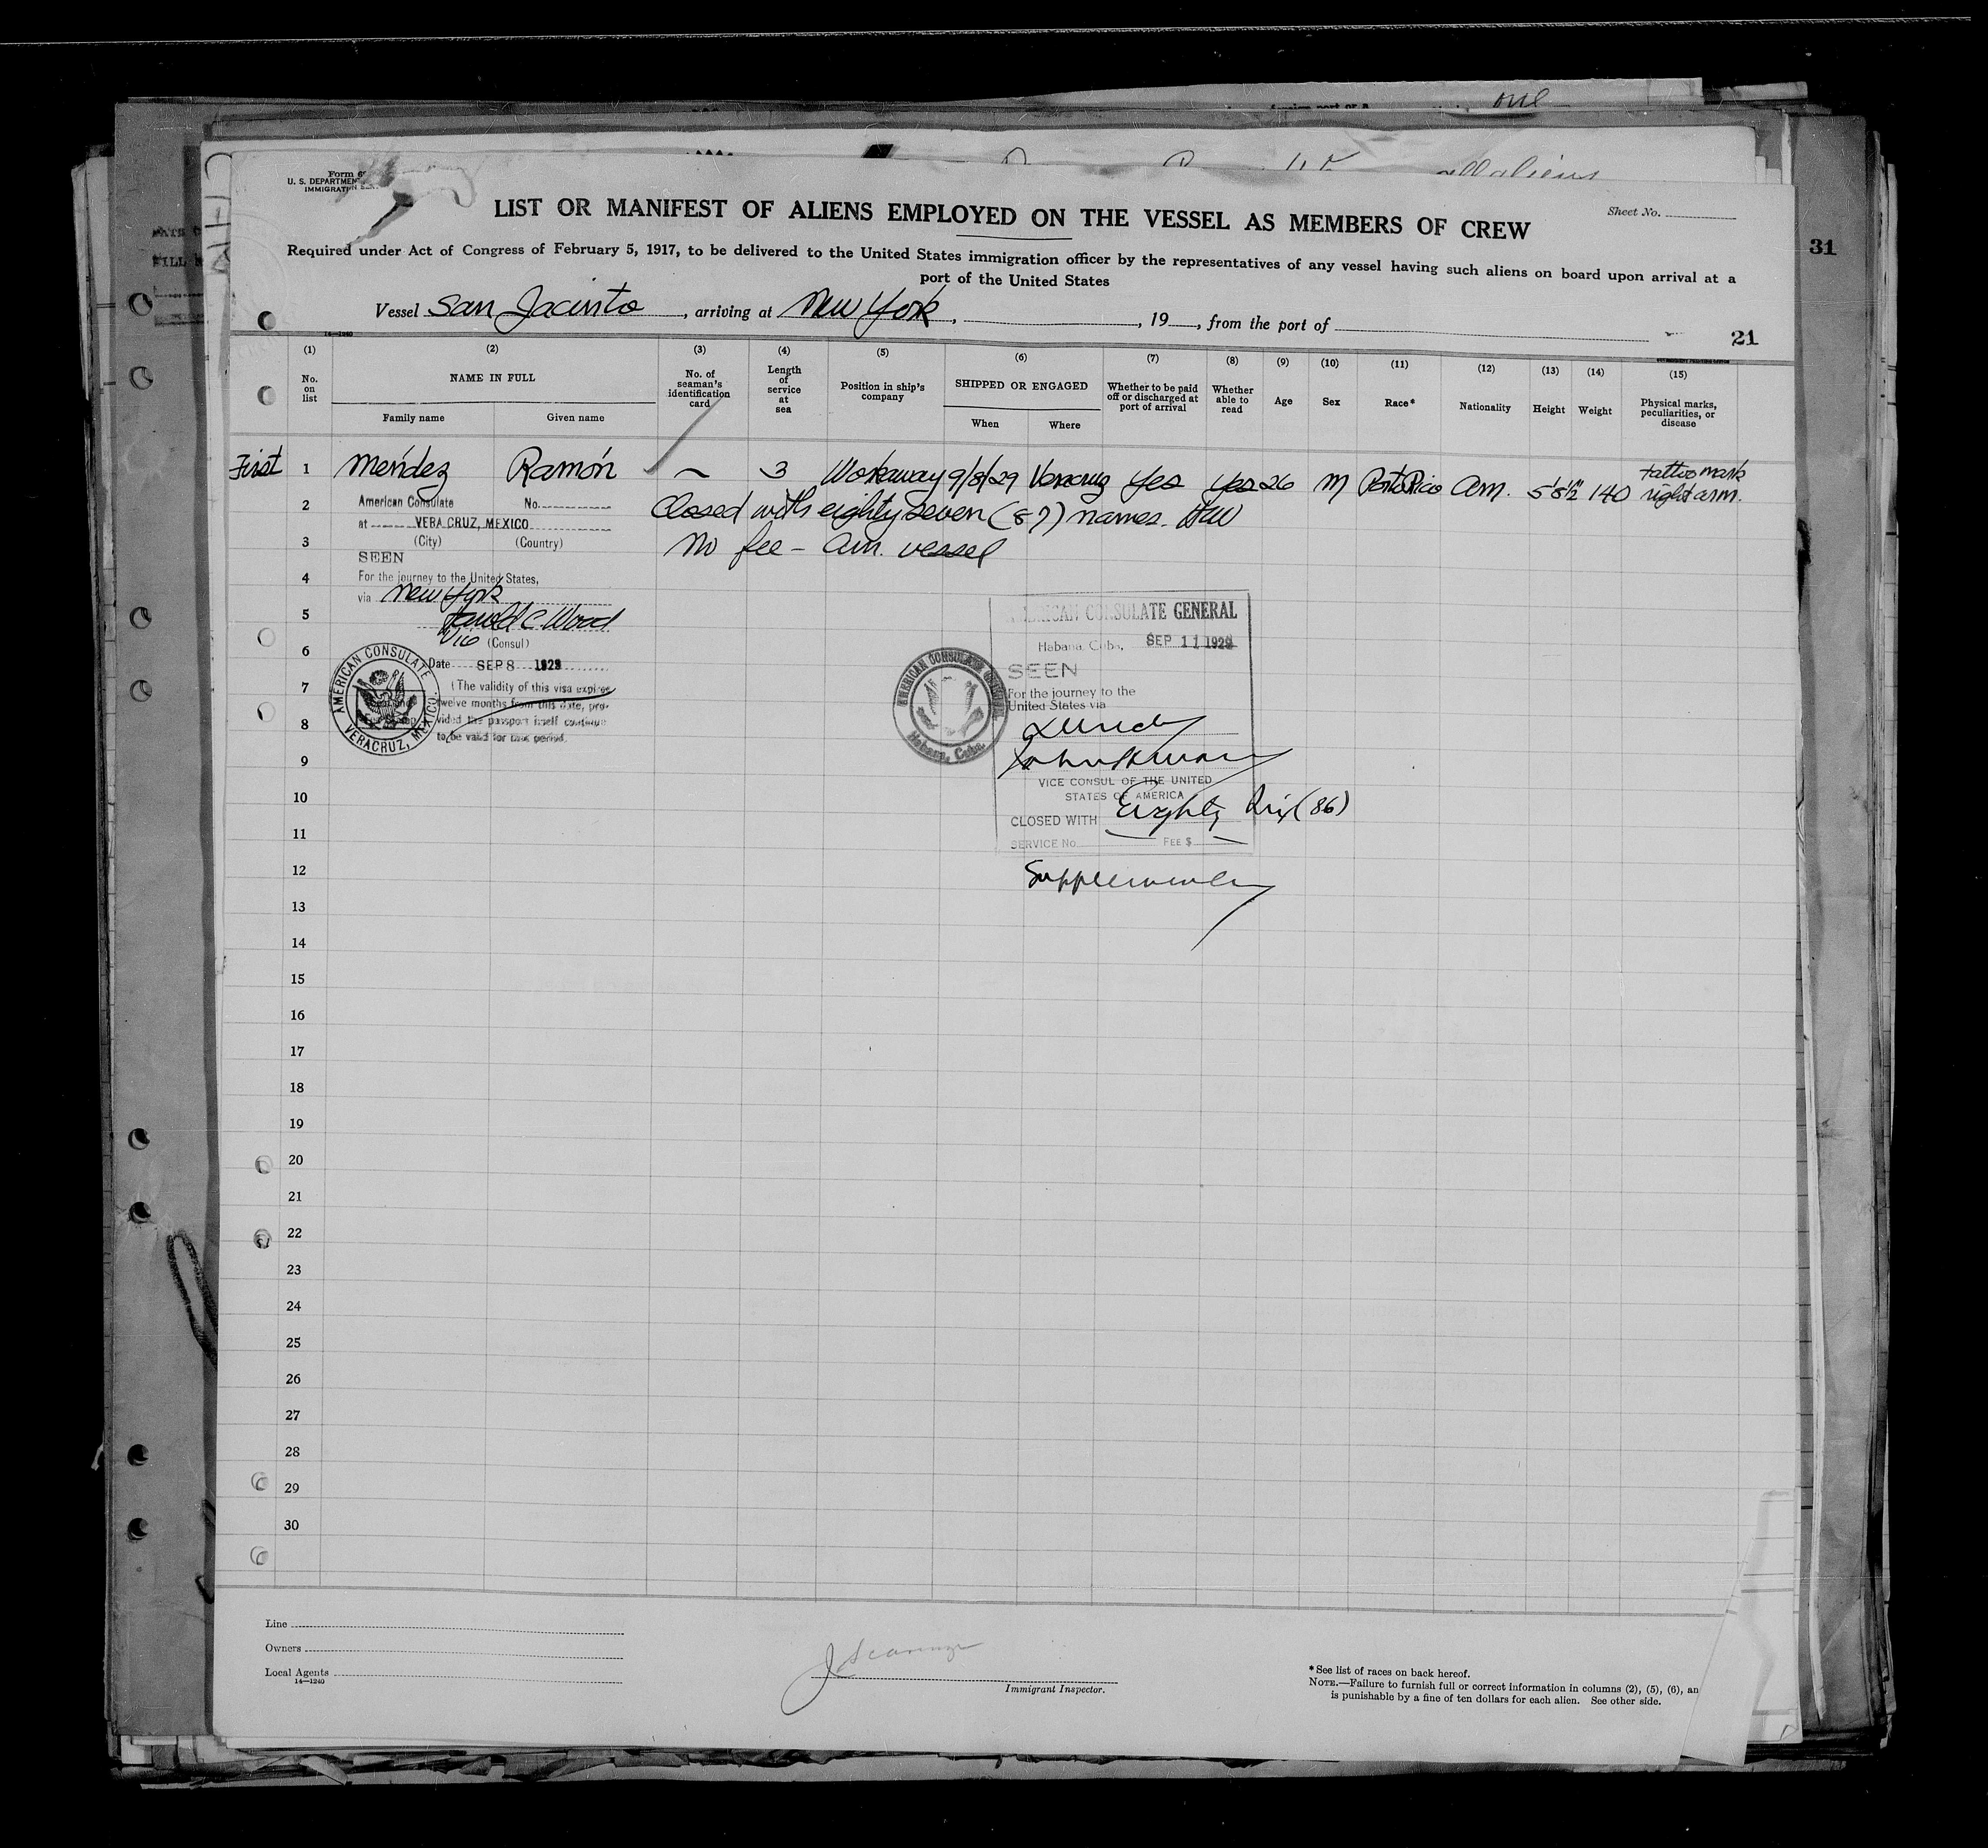 one
all aliens
31
Form 6
U. S. DEPARTMENT
IMMIGRATION
Sheet No.
LIST OR MANIFEST OF ALIENS EMPLOYED ON THE VESSEL AS MEMBERS OF CREW
Required under Act of Congress of February 5, 1917, to be delivered to the United States immigration officer by the representatives of any vessel having such aliens on board upon arrival at a
port of the United States
Vessel San Jacinto, arriving at New York, , 19 , from the port of
14—1240
21
(1) (2) (3) (4) (5) (6) (7) (8) (9) (10) (11) (12) (13) (14) (15)
No. on list NAME IN FULL No. of seaman's identification card Length of service at sea Position in ship's company SHIPPED OR ENGAGED Whether to be paid off or discharged at port of arrival Whether able to read Age Sex Race* Nationality Height Weight Physical marks, peculiarities, or disease
Family name Given name When Where
First 1 Mendez Ramón 3 Workaway 9/8/29 Veracruz Yes Yes 26 M Porto Rico Am. 5'8½" 140 tattoo mark right arm.
2 Closed with eighty seven (87) names. HCW
American Consulate No.
at VERA CRUZ, MEXICO
(City) (Country)
3 No fee - Am. vessel
SEEN
4 For the journey to the United States,
via New York
5 Harold C. Wood
Vice (Consul)
6
Date SEP 8 1929
7 (The validity of this visa expires
twelve months from this date, pro-
8 vided the passport itself continues
to be valid for that period.
AMERICAN CONSULATE
VERACRUZ, MEXICO.
AMERICAN CONSULATE GENERAL
Habana, Cuba, SEP 11 1929
SEEN
For the journey to the
United States via
VICE CONSUL OF THE UNITED
STATES OF AMERICA
CLOSED WITH Eighty Six (86)
SERVICE No. FEE $
Supplementary
AMERICAN CONSULATE GENERAL
Habana, Cuba.
9
10
11
12
13
14
15
16
17
18
19
20
21
22
23
24
25
26
27
28
29
30
Line
Owners
Local Agents
14—1240
Immigrant Inspector.
* See list of races on back hereof.
NOTE.—Failure to furnish full or correct information in columns (2), (5), (6), an
is punishable by a fine of ten dollars for each alien. See other side.